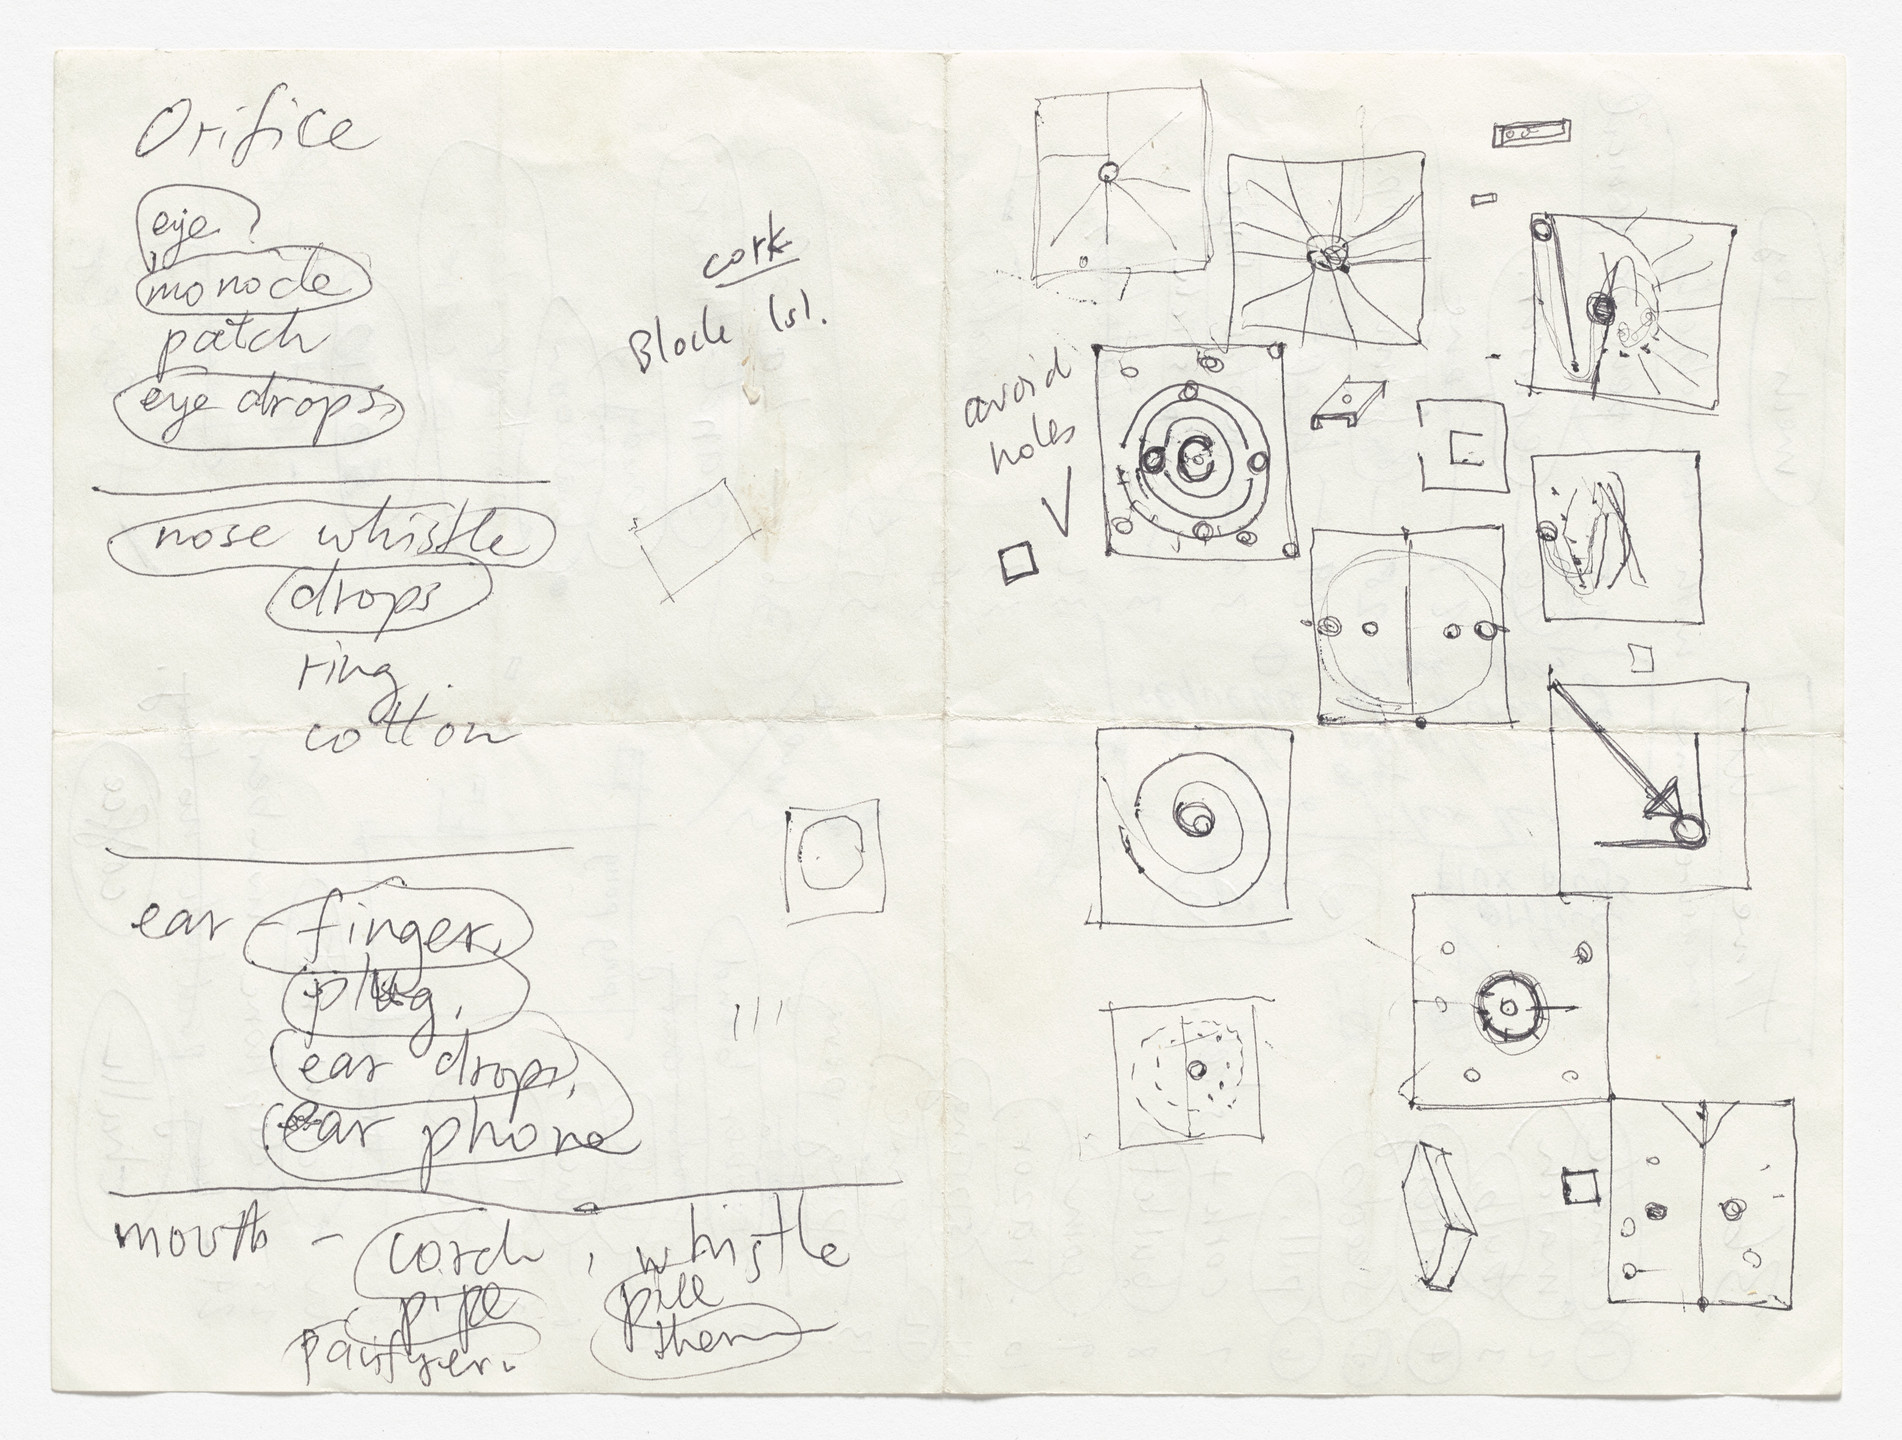 Orifice
eye
monocle
patch
eye drops,
cork
Block (s).
nose whistle
drops
ring
cotton
ear - finger,
plug,
ear drops,
ear phone
mouth - , whistle
pipe pill
therm
avoid
holes